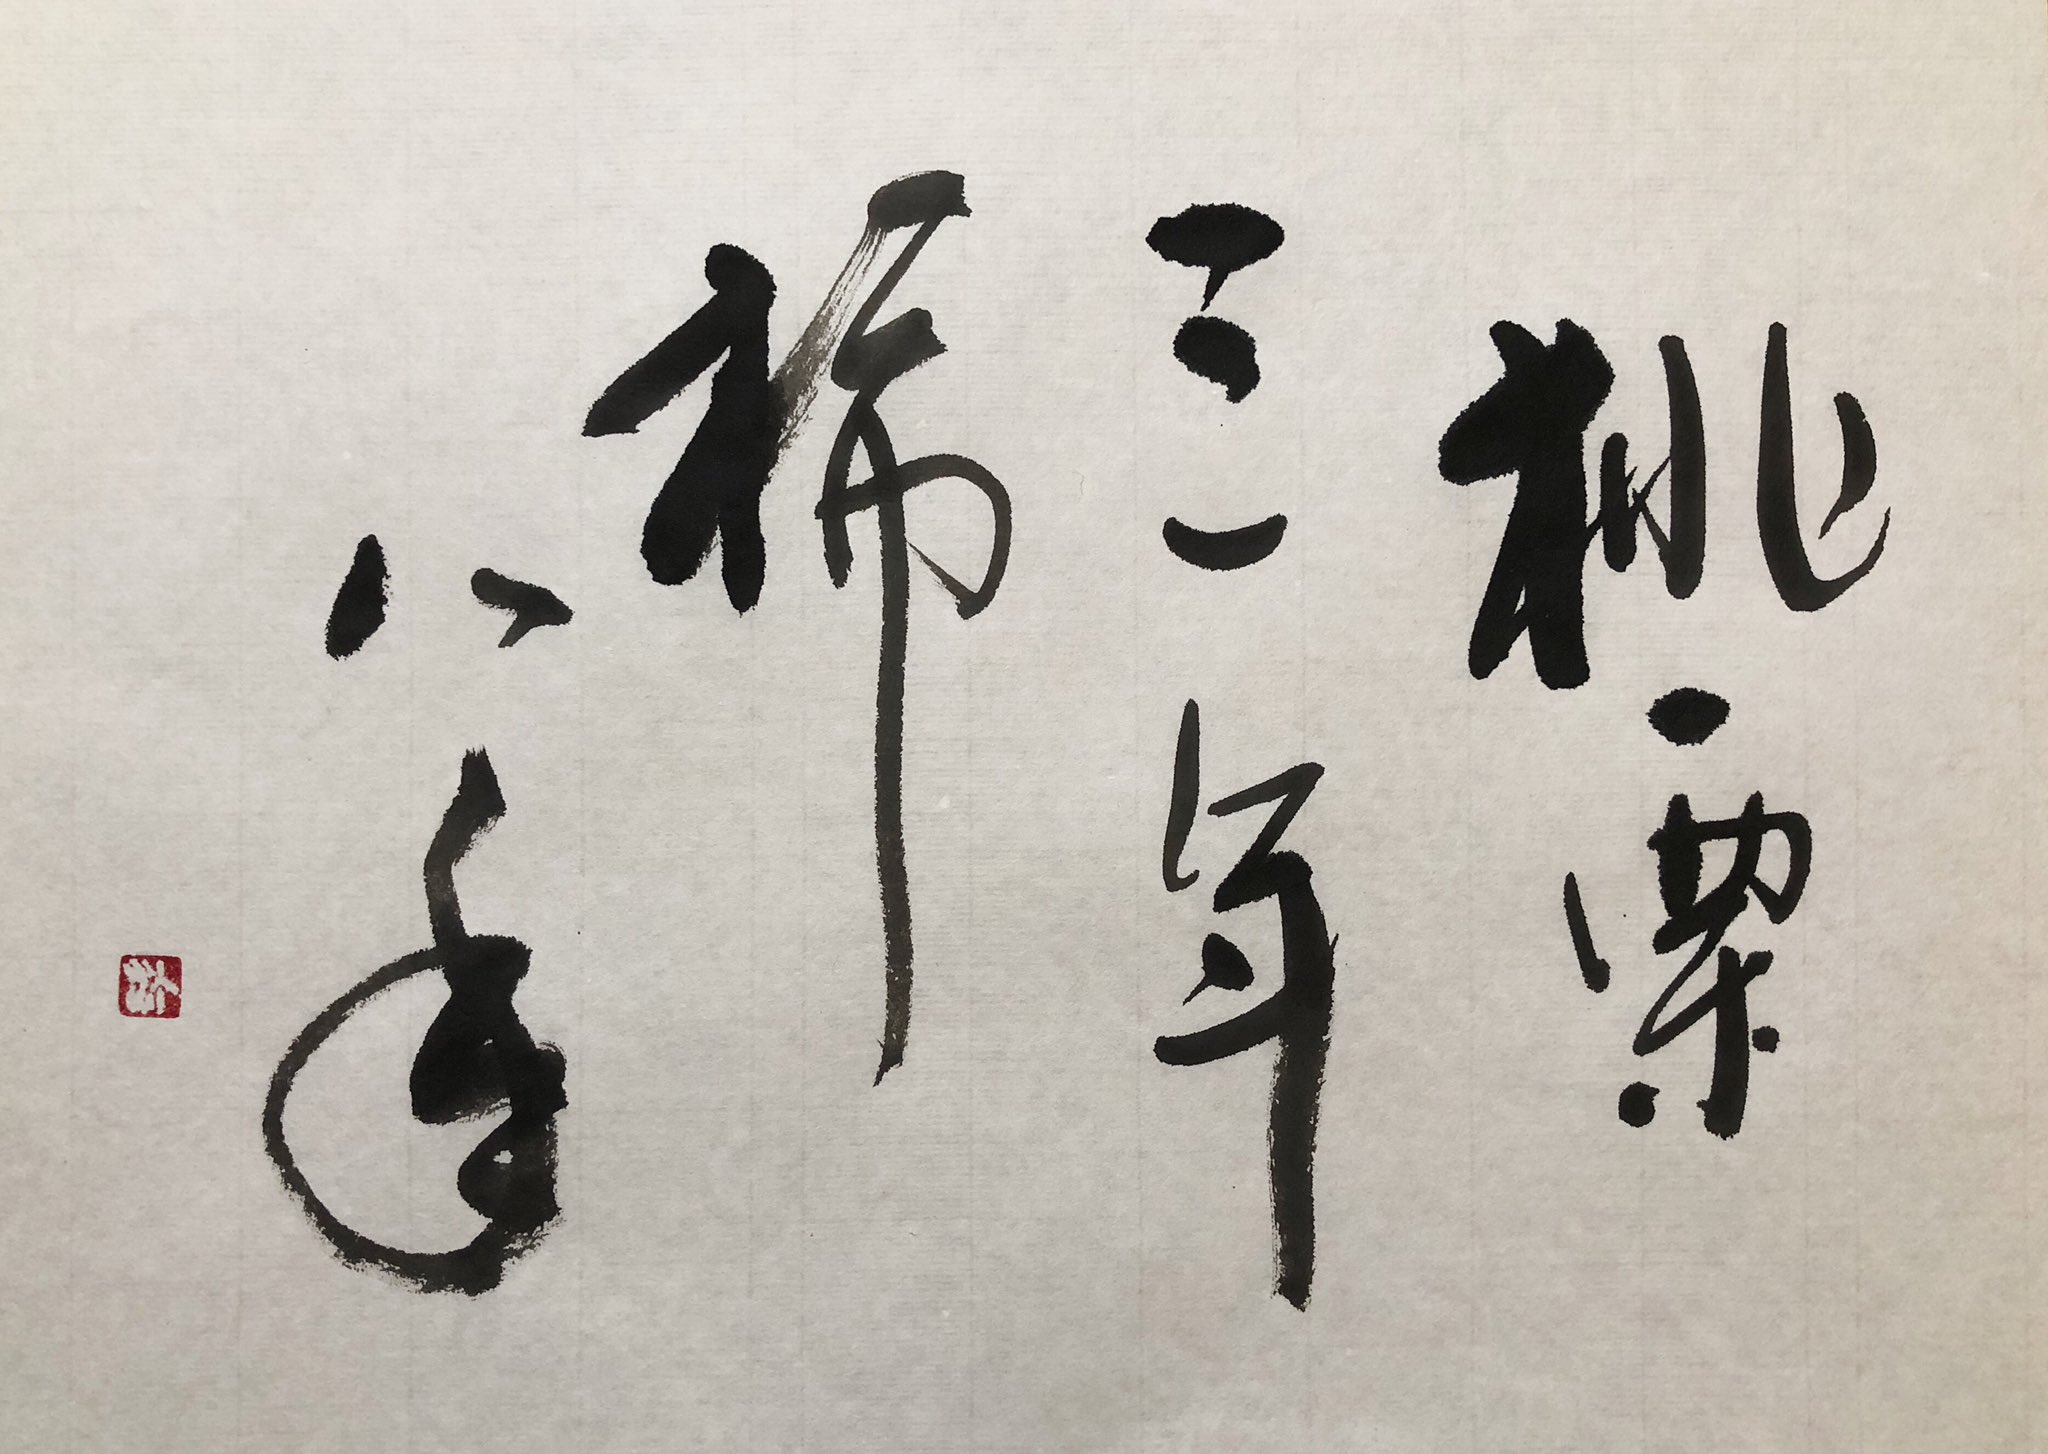 桃栗
三年
柿
八年